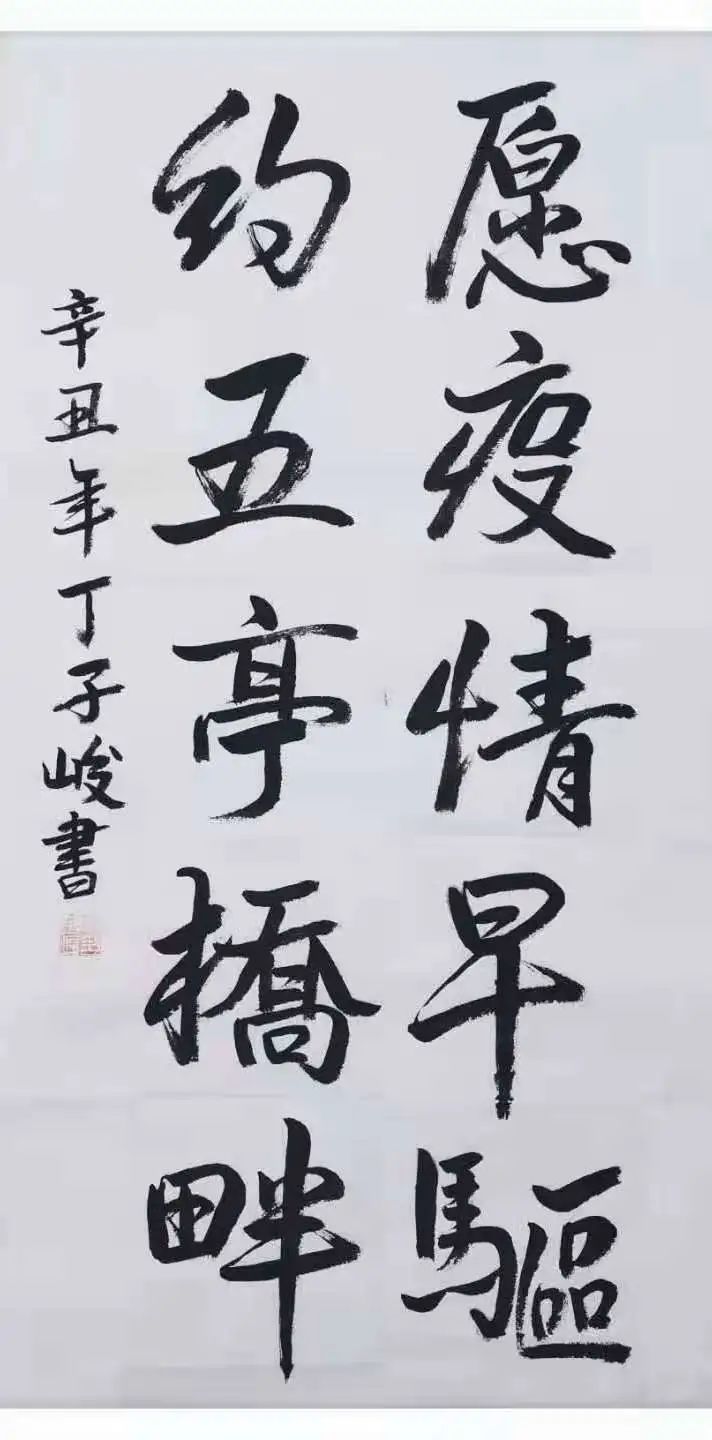 愿疫情早驅
约五亭橋畔
辛丑年丁子峻書